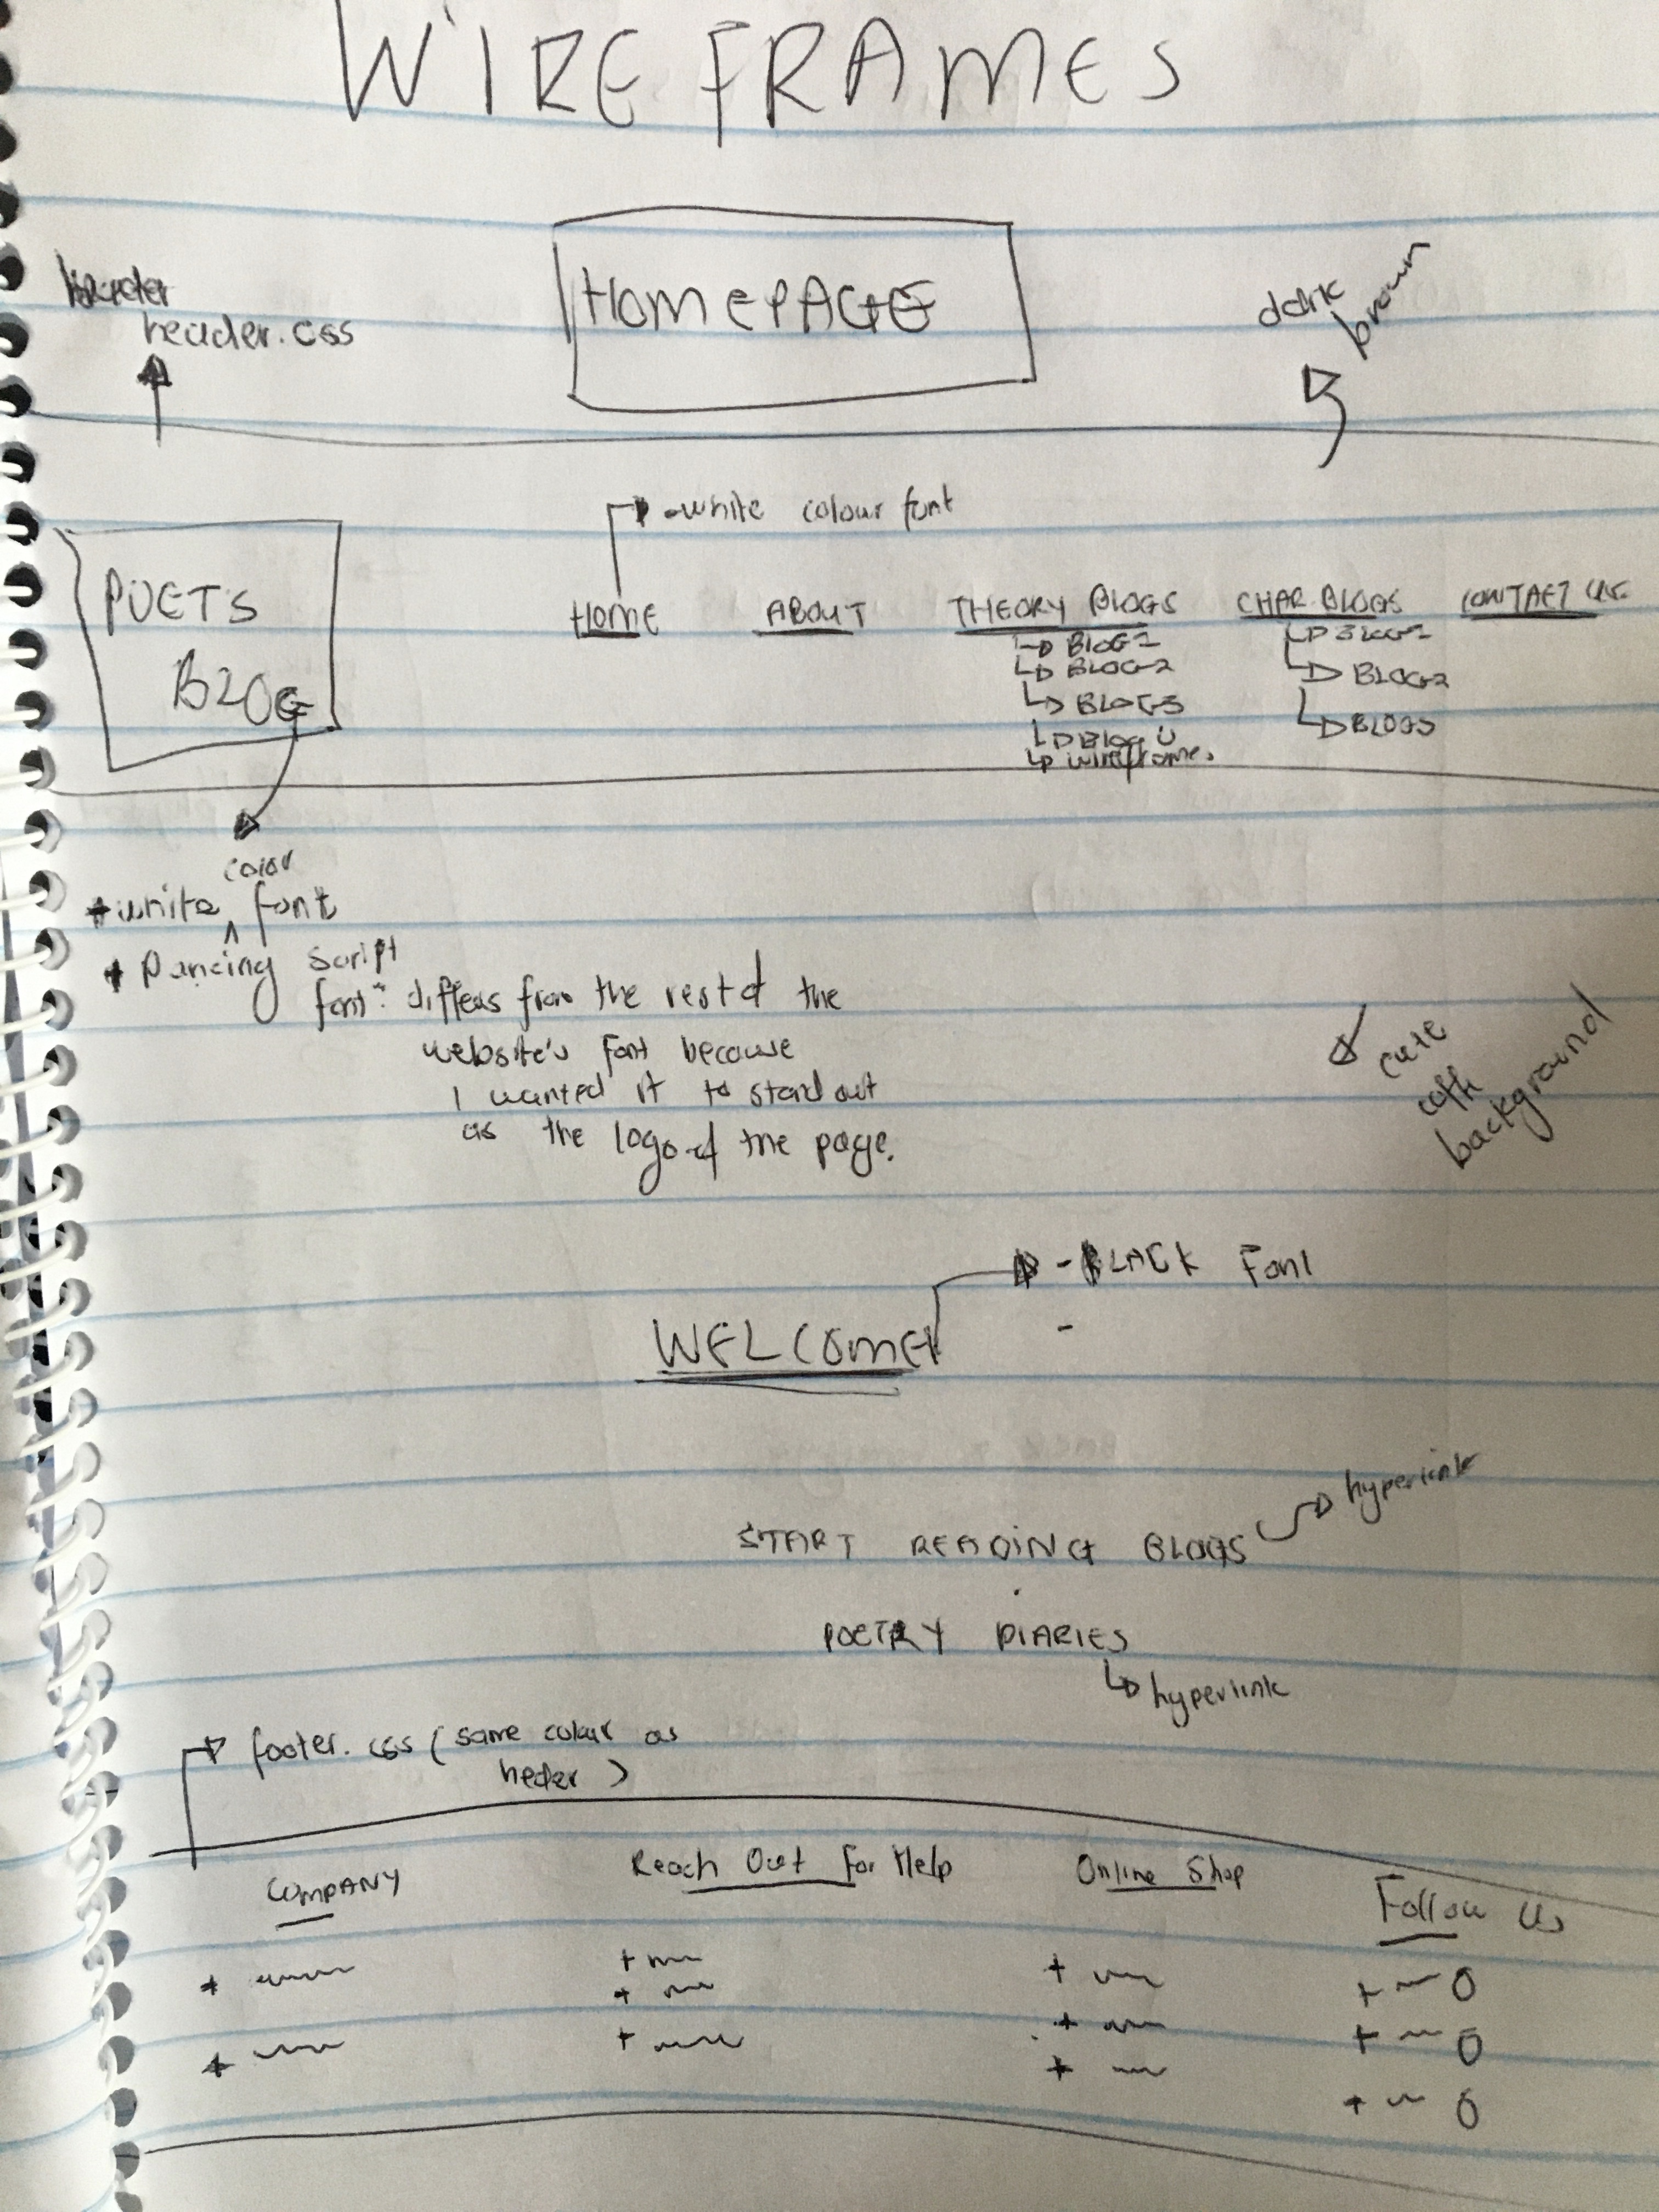 WIREFRAMES
HOMEPAGE
header.css
dark
brown
-white colour font
POETS
BLOG
HOME ABOUT THEORY BLOGS CHAR BLOGS CONTACT US
BLOG1
BLOG2
BLOG3
BLOG
wireframe.
BLOG1
BLOG2
BLOG3
color
+ white ^ font
+ Dancing Script
font: differs from the rest of the
website's font because
I wanted it to stand out
as the logo of the page.
cute
background
- BLACK Font
-
WELCOME
START READING BLOGS hyperlink
POETRY DIARIES
hyperlink
footer.css (same colour as
heder)
COMPANY Reach Out For Help Online Shop Follow Us